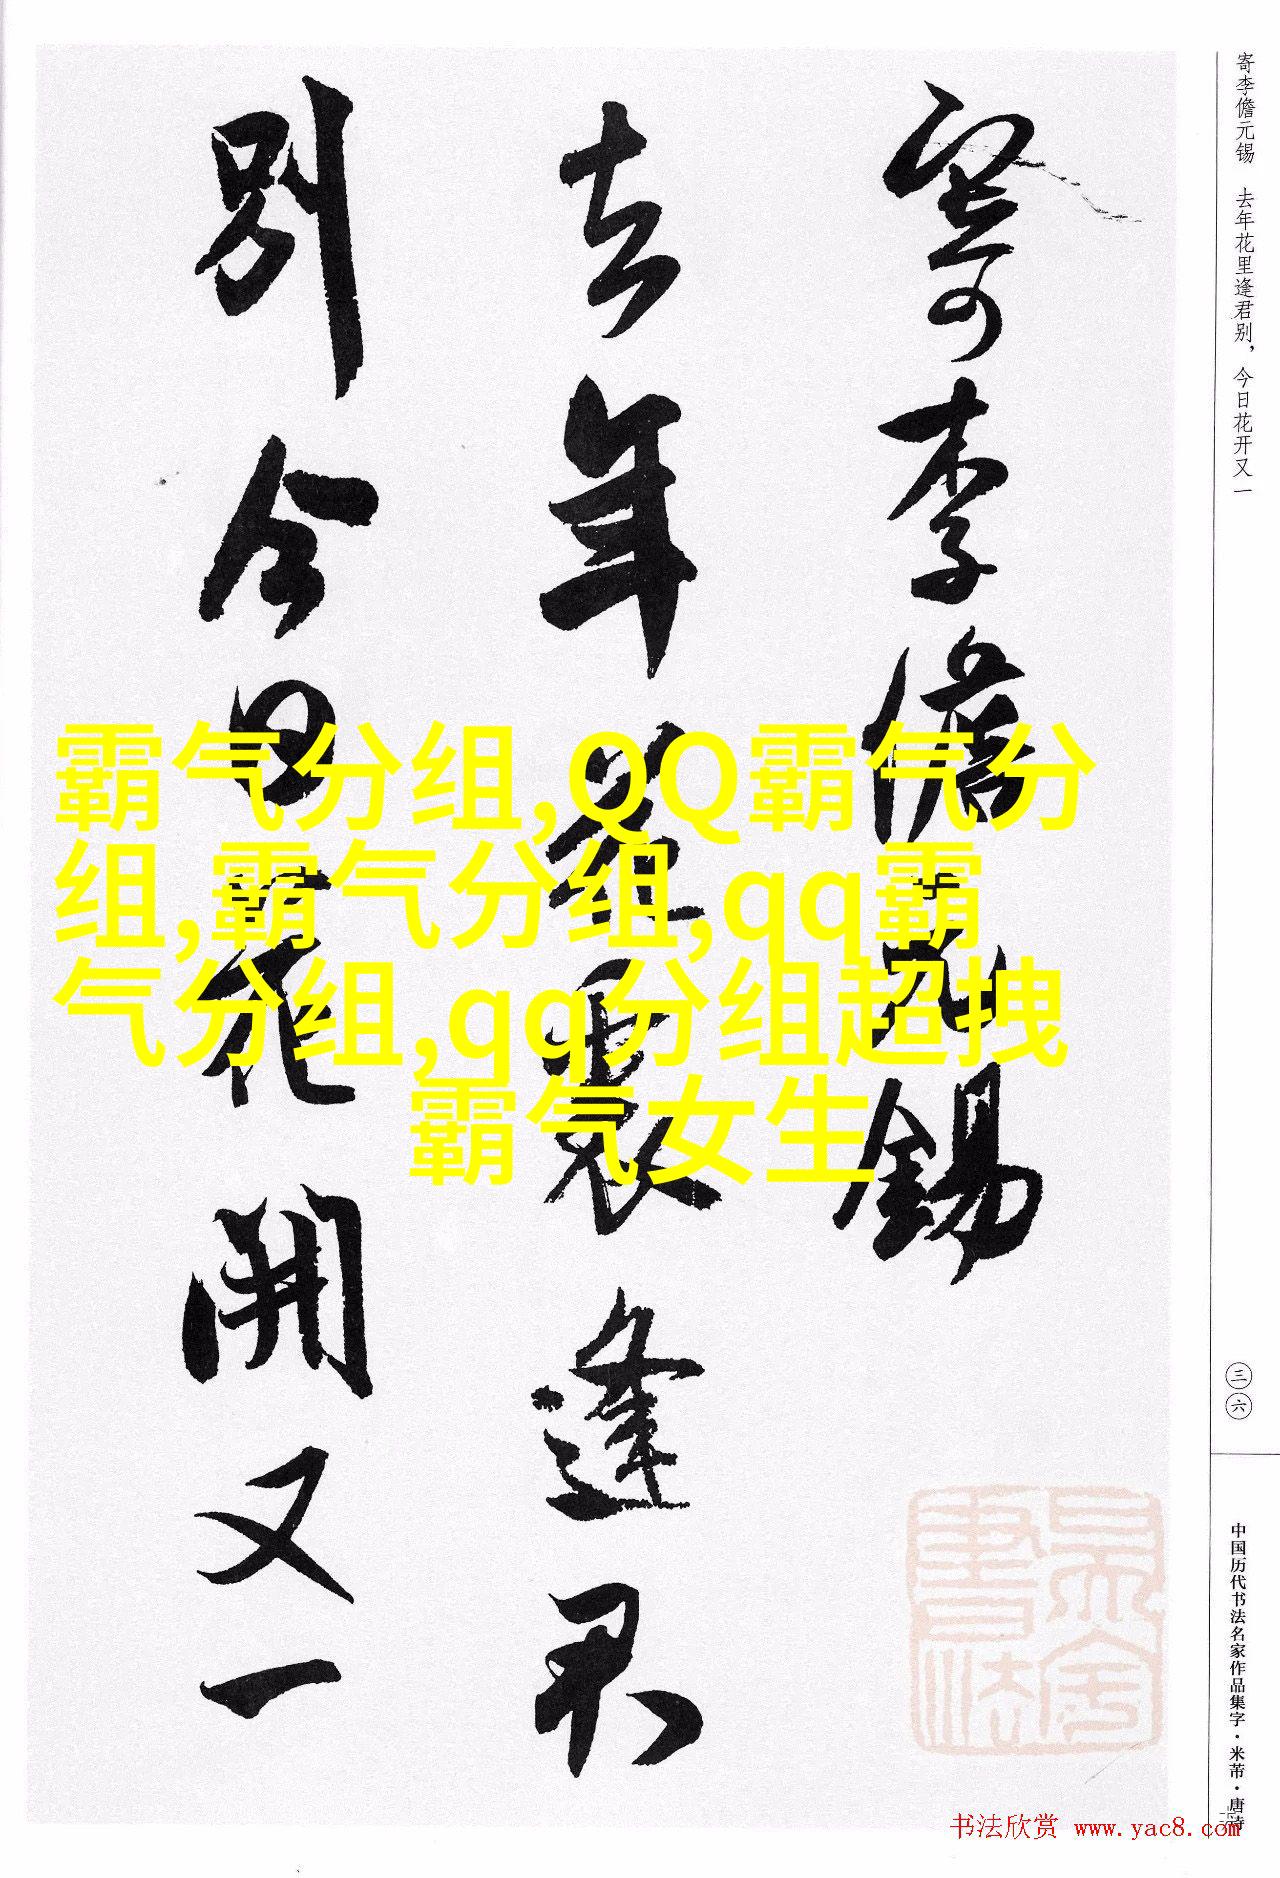 寄李儋元锡 去年花里逢君别，今日花开又一
寄李儋元錫
去年花裏逢君
别今日花開又一
霸气分组,QQ霸气分
组,霸气分组,qq霸
气分组,qq分组超拽
霸气女生
三六
中国历代书法名家作品集字·米芾·唐诗
书法欣赏 www.yac8.com